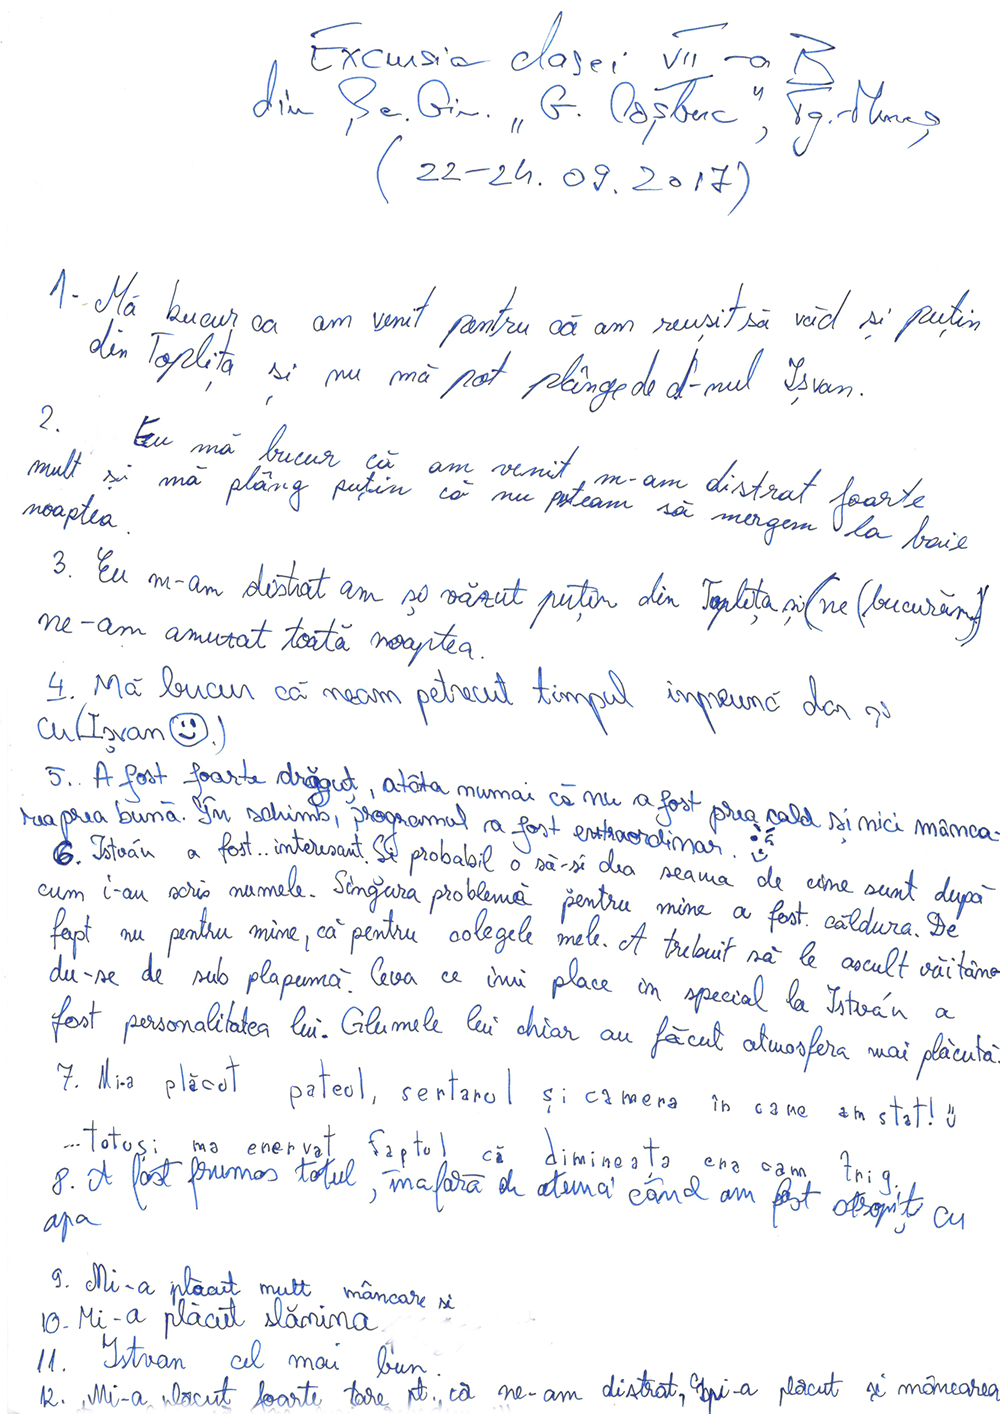 Excursia clasei VII-a B
din Șc. Gin. „G. Coșbuc", Tg.-Mureș
(22-24.09.2017)
1- Mă bucur ca am venit pentru că am reușit să văd și puțin
din Toplița și nu mă pot plânge de d-nul Ișvan.
2. Eu mă bucur că am venit, m-am distrat foarte
mult și mă plâng puțin că nu puteam să mergem la baie
noaptea.
3. Eu m-am distrat am și văzut puțin din Toplița și (ne (bucurăm))
ne-am amuzat toată noaptea.
4. Mă bucur că neam petrecut timpul inpreună dar și
cu (Ișvan ☺.)
5.. A fost foarte drăguț, atâta numai că nu a fost prea cald și nici mânca-
rea prea bună. În schimb, programul a fost extraordinar.
6. István a fost.. interesant. Și probabil o să-și dea seama de cine sunt după
cum i-au scris numele. Singura problemă pentru mine a fost căldura. De
fapt nu pentru mine, că pentru colegele mele. A trebuit să le ascult văitâno
du-se de sub plapumă. Ceva ce îmi place în special la István a
fost personalitatea lui. Glumele lui chiar au făcut atmosfera mai plăcută.
7. Mi-a plăcut pateul, sertarul și camera în care am stat! ☺
...totuși ma enervat faptul că dimineața era cam frig.
8. A fost frumos totul, înafară de atunci când am fost stropiț cu
apa
9. Mi-a plăcut mult mâncare si
10. Mi-a plăcut slănina
11. Istvan cel mai bun.
12. Mi-a plăcut foarte tare pt. că ne-am distrat, mi-a plăcut și mâncarea